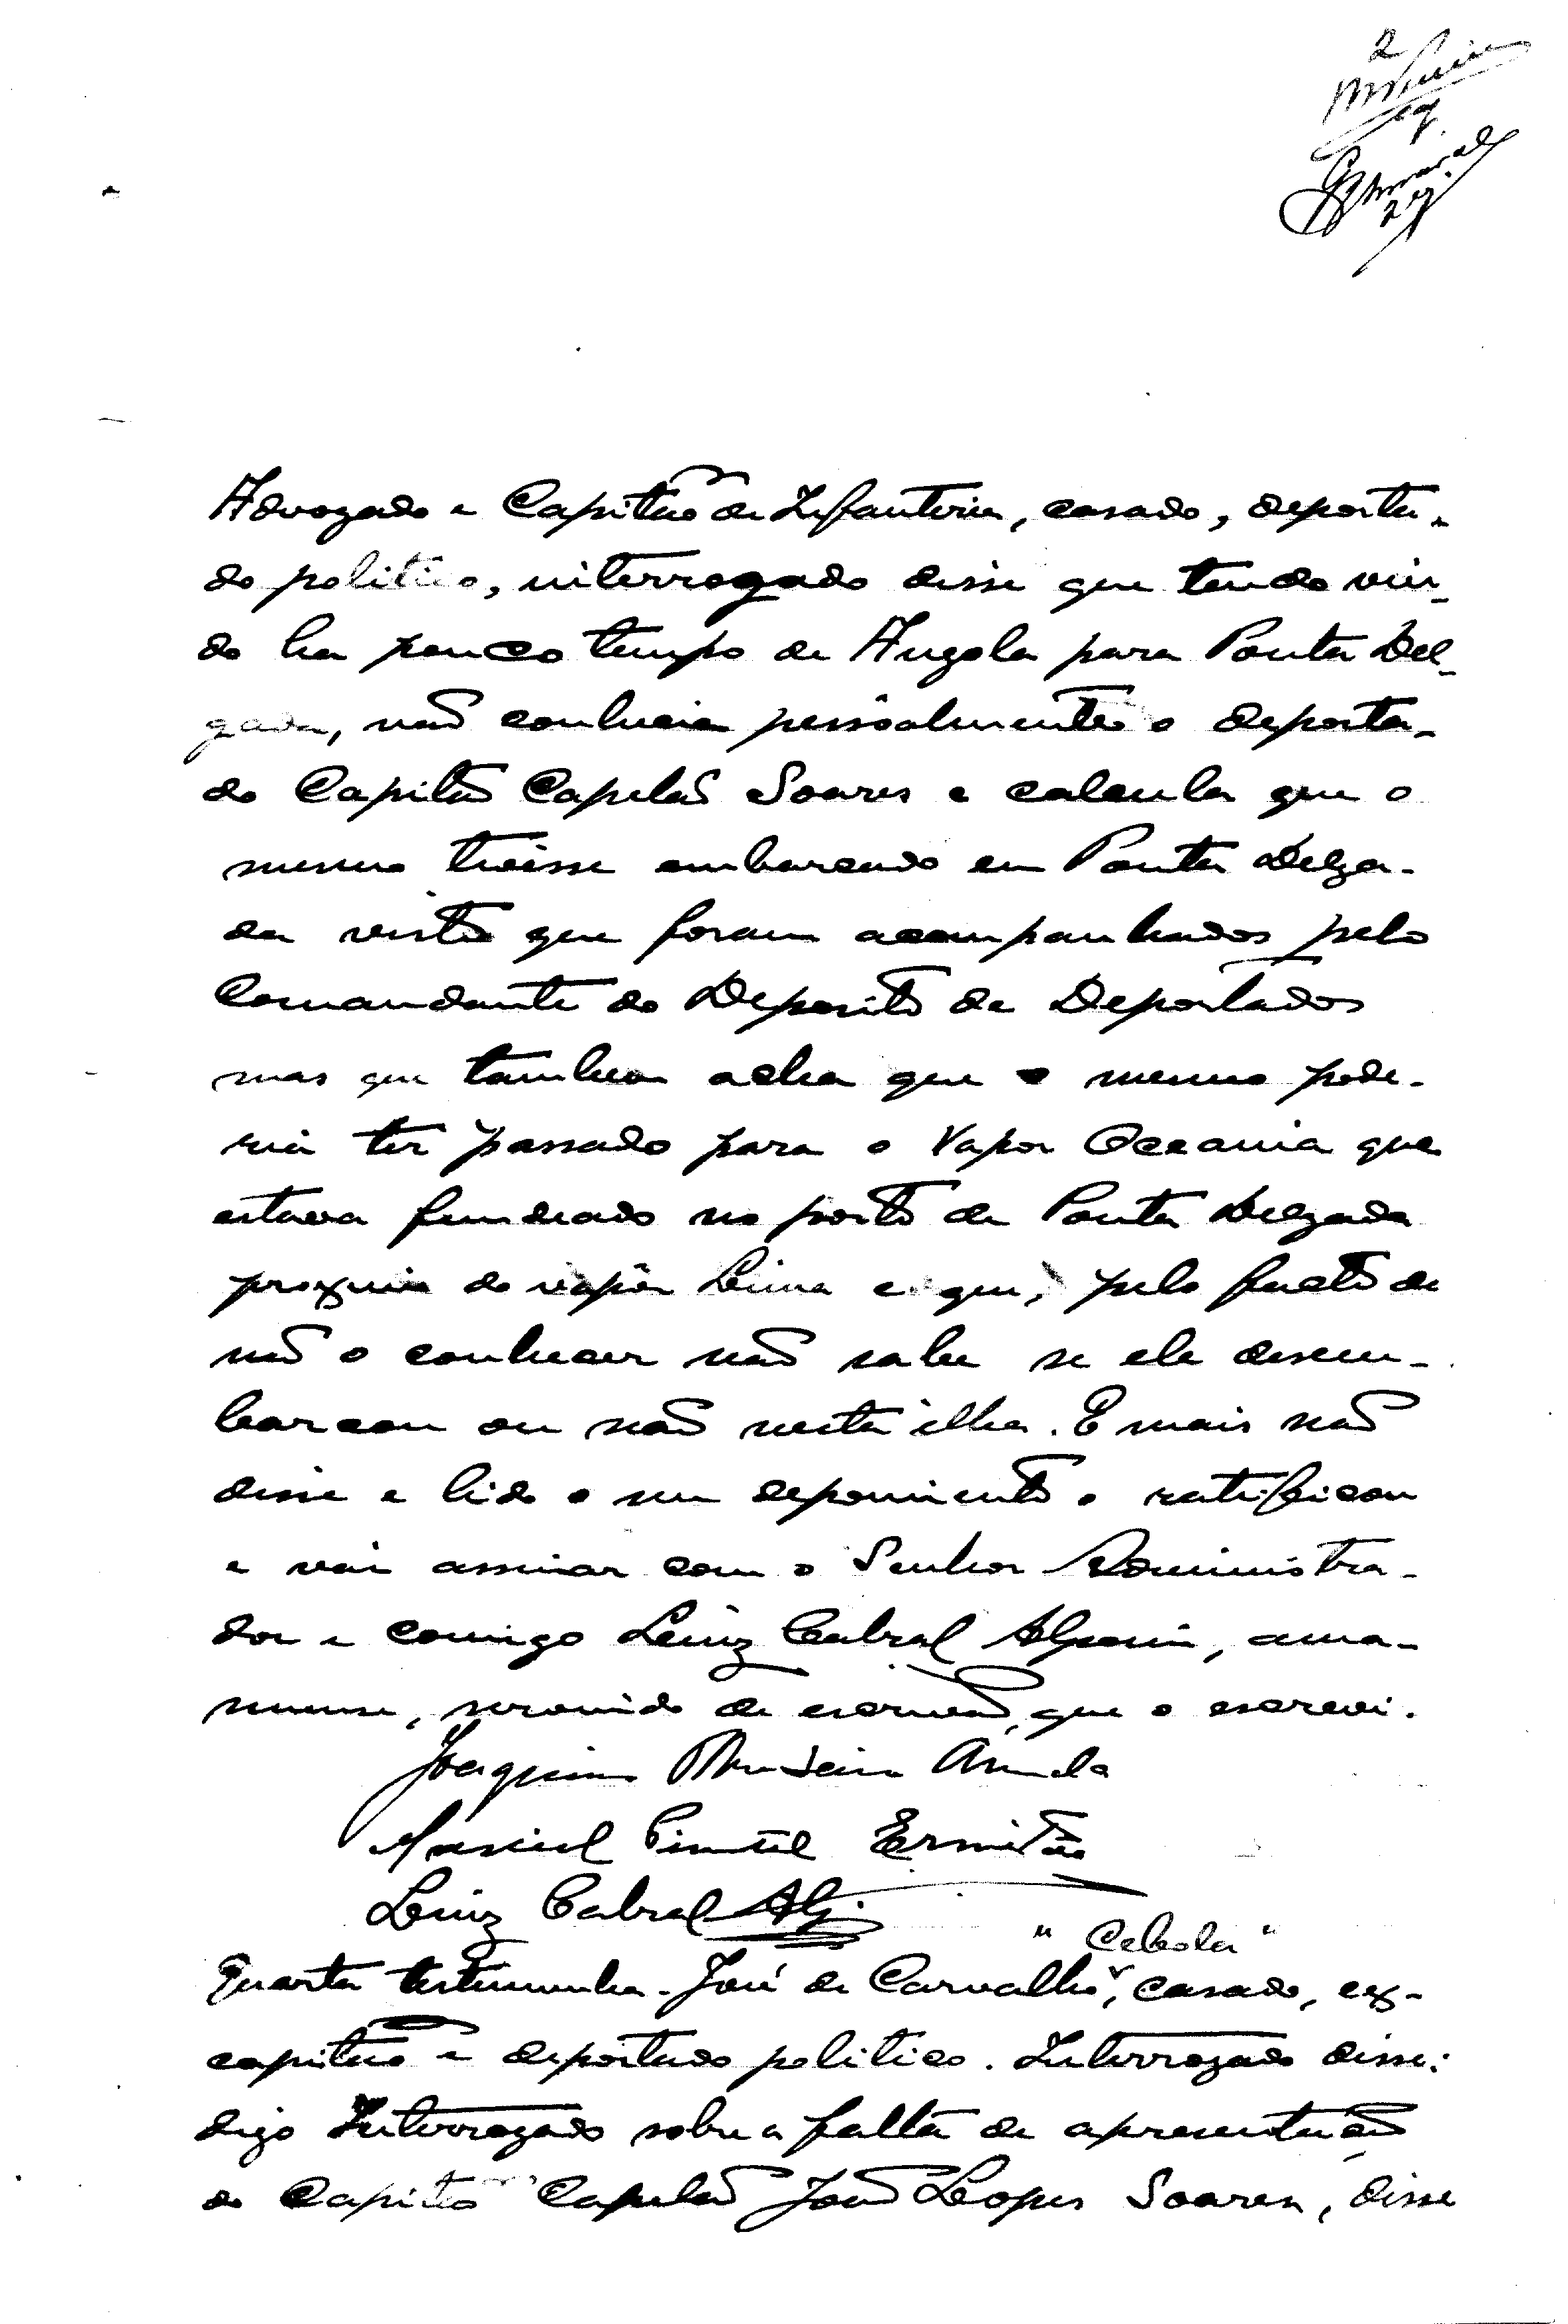 2
Advogado e Capitão de Infanteria, casado, deporta-
do politico, interrogado disse que tendo vin-
do ha pouco tempo de Angola para Ponta Del-
gada, não conhecia pessoalmente o deporta-
do Capitão Capelão Soares e calcula que o
mesmo tivesse embarcado em Ponta Delga-
da visto que foram acompanhados pelo
Comandante do Deposito de Deportados
mas que tambem acha que o mesmo pode-
ria ter passado para o Vapor Oceania que
estava fundeado no porto de Ponta Delgada
proximo do vapôr Lima e que, pelo facto de
não o conhecer não sabe se ele desem-
barcou ou não nesta ilha. E mais não
disse e lido o seu depoimento o ratificou
e vai assinar com o Senhor Administra-
dor e comigo Luiz Cabral, ama-
nuense, servindo de escrivão, que o escrevi.
Joaquim
Manuel Pimentel Ermitão
Luiz Cabral
"Cebola"
Quarta testemunha. José de Carvalho, casado, ex-
capitão e deportado politico. Interrogado disse:
digo Interrogado sobre a falta de apresentação
do Capitão Capelão João Lopes Soares, disse